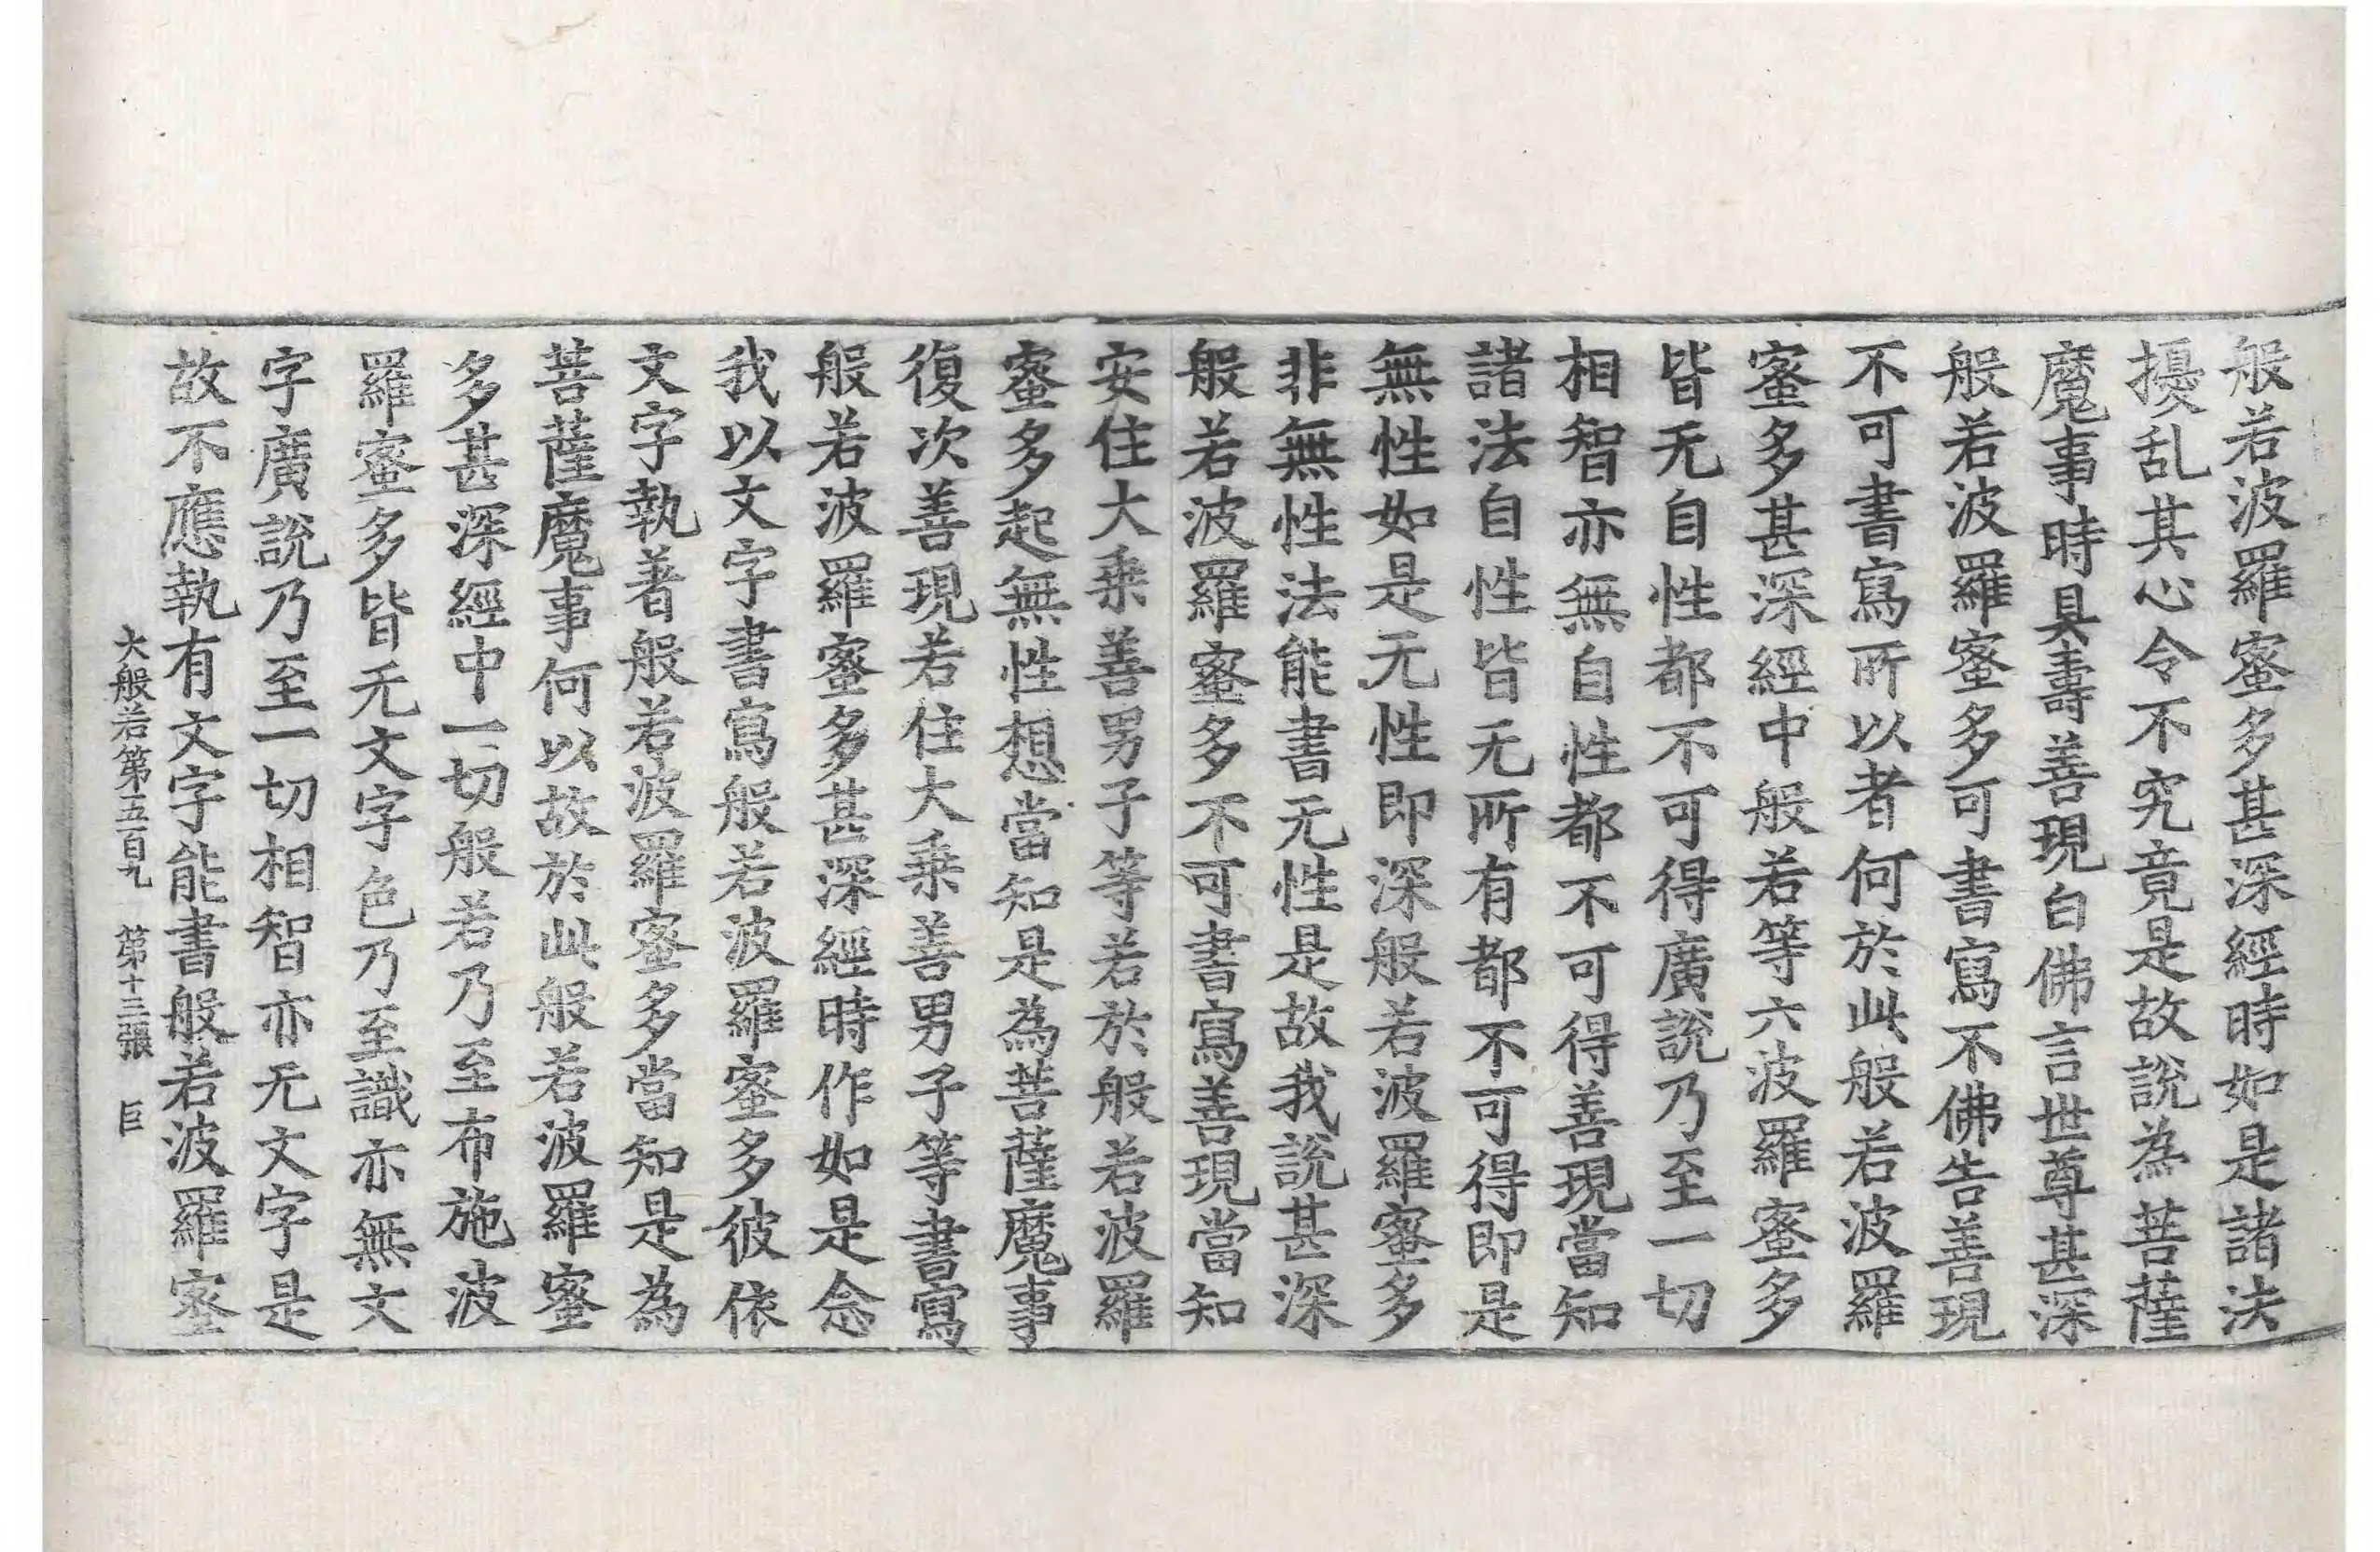 般若波羅蜜多甚深經時如是諸法
擾乱其心令不究竟是故說為菩薩
魔事時具壽善現白佛言世尊甚深
般若波羅蜜多可書寫不佛告善現
不可書寫所以者何於此般若波羅
蜜多甚深經中般若等六波羅蜜多
皆无自性都不可得廣說乃至一切
相智亦無自性都不可得善現當知
諸法自性皆无所有都不可得即是
無性如是无性即深般若波羅蜜多
非無性法能書无性是故我說甚深
般若波羅蜜多不可書寫善現當知
安住大乗善男子等若於般若波羅
蜜多起無性想當知是為菩薩魔事
復次善現若住大乗善男子等書寫
般若波羅蜜多甚深經時作如是念
我以文字書寫般若波羅蜜多彼依
文字執著般若波羅蜜多當知是為
菩薩魔事何以故於此般若波羅蜜
多甚深經中一切般若乃至布施波
羅蜜多皆无文字色乃至識亦無文
字廣說乃至一切相智亦无文字是
故不應執有文字能書般若波羅蜜
大般若第五百九 第十三張 巨